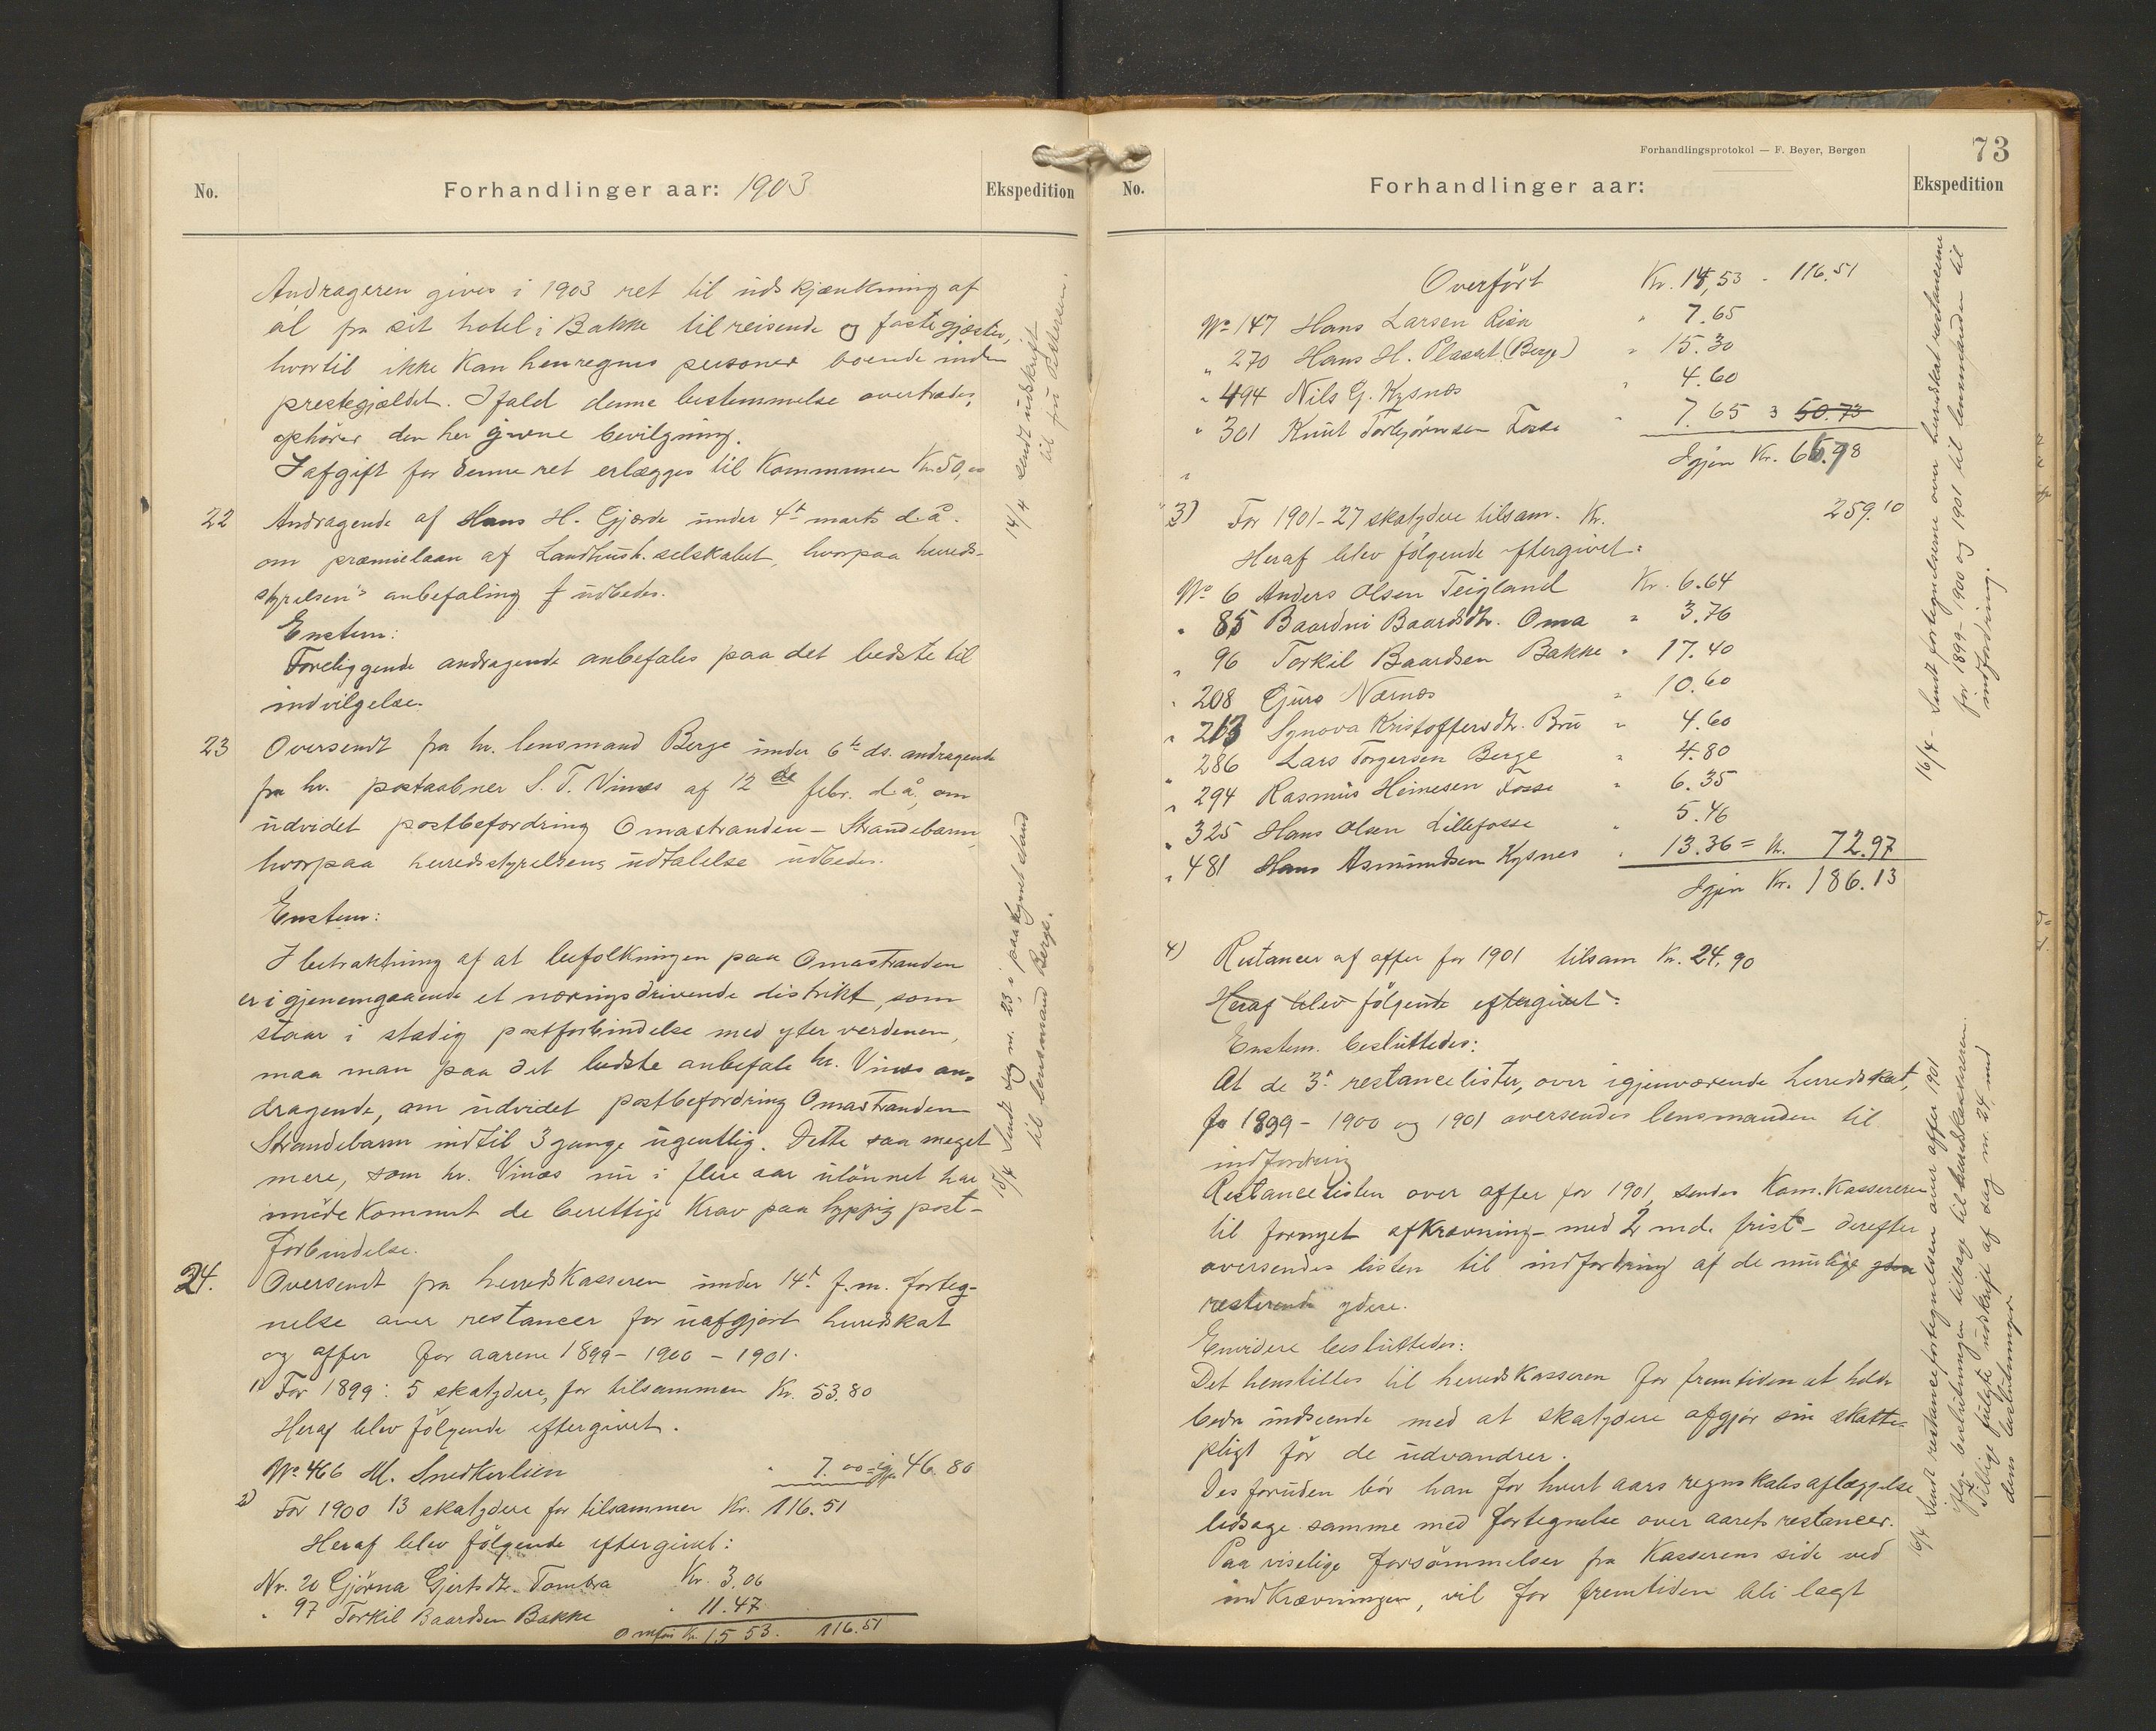 No.
Forhandlinger aar: 1903
Ekspedition
Andrageren gives i 1903 ret til udskjænkning af
øl fra sit hotel i Bakke til reisende og faste gjæster,
hvortil ikke kan henregnes personer boende inden
prestegjældet. Ifald denne bestemmelse overtrædes,
ophører den her givne bevilgning.
I afgift for denne ret erlægges til Kommunen Kr. 50,00
14/4 sendt udskrift
til fru Pettersen.
22 Andragende af Hans H. Gjerde under 4de marts d. å.
om præmielaan af Landhush. selskabet, hvorpaa hereds-
styrelsen's anbefaling udbedes.
Enstem:
Foreliggende andragende anbefales paa det bedste til
indvilgelse.
23 Oversendt fra hr. lensmand Berge under 6te ds. andragende
fra hr. postaabner S. T. Vinæs af 12de febr. d. å. om
udvidet postbefordring Omastranden - Strandebarm,
hvorpaa herredsstyrelsens udtalelse udbedes.
Enstem:
I betraktning af at befolkningen paa Omastranden
er i gjenemgaaende et næringsdrivende distrikt, som
staar i stadig postforbindelse med yter verdenen,
maa man paa det bedste anbefale hr. Vinæs an-
dragende, om udvidet postbefordring Omastranden
Strandebarm indtil 3 gange ugentlig. Dette saa meget
mere, som hr. Vinæs nu i flere aar ulønnet har
imødekommet de berettige krav paa hyppig post-
forbindelse.
15/4 Sendt sag nr. 23, i paategnet stand
til lensmand Berge.
24. Oversendt fra herredskasseren under 14de f. m. forteg-
nelse over restancer for uafgjort herredskat
og offer for aarene 1899 - 1900 - 1901.
1) For 1899: 5 skatydere, for tilsammen Kr. 53.80
Heraf blev følgende eftergivet.
No 466 M. Snedkerlien " 7.00 = igj. 46.80
2) For 1900 13 skatydere for tilsammen Kr. 116.51
Heraf blev følgende eftergivet:
Nr. 20 Gjørna Gjertsdtr. Tombra Kr. 3.06
" 97 Torkil Baardsen Bakke " 11.47
Omført Kr. 15 53. 116.51
Forhandlingsprotokol — F. Beyer, Bergen
73
No.
Forhandlinger aar:
Ekspedition
Overført Kr. 14,53 - 116.51
No 147 Hans Larsen Lien " 7.65
" 270 Hans H. (Berge) " 15.30
" 494 Nils G. Kysnæs " 4.60
" 301 Knut Torbjørnsen Fosse " 7.65 = 50.73
Igjen Kr. 65.78
3) For 1901 - 27 skatydere tilsam. Kr. 259.10
Heraf blev følgende eftergivet:
No 6 Anders Olsen Teigland Kr. 6.64
" 85 Baardni Baardsdtr. Oma " 3.76
" 96 Torkil Baardsen Bakke " 17.40
" 208 Gjuro Nærnæs " 10.60
" 213 Synova Kristoffersdtr. Bru " 4.60
" 286 Lars Torgersen Berge " 4.80
" 294 Rasmus Heinesen Fosse " 6.35
" 325 Hans Olsen Lillefosse " 5.46
" 481 Hans Asmundsen Kysnes " 13.36 = Kr. 72.97
Igjen Kr. 186.13
16/4 - Sendt fortegnelserne over herredskat restancerne
for 1899 - 1900 og 1901 til lensmanden til
indfordring.
4) Restancer af offer for 1901 tilsam Kr. 24.90
Heraf blev følgende eftergivet:
Enstem. besluttedes:
At de 3de restancelister, over igjenværende herredskat,
for 1899 - 1900 og 1901 oversendes lensmanden til
indfordring
Restancelisten over offer for 1901, sendes Kom. Kassereren
til fornyet afkrævning - med 2 md. frist - derefter
oversendes listen til indfordring af de mulige
resterende ydere.
Envidere besluttedes:
Det henstilles til herredskasseren for fremtiden at holde
bedre indseende med at skatydere afgjør sin skatte-
pligt før de udvandrer.
Des foruden bør han for hvert aars regnskabsaflæggelse
ledsage samme med fortegnelse over aarets restancer.
Paaviselige forsømmelser fra Kasserens side ved
indkrævningen, vil for fremtiden bli lagt
16/4 Sendt restancefortegnelsen over offer 1901
efter beslutningen tillige til herredskassereren.
Tillige fulgte udskrift af sag nr. 24 med
dens beslutninger.